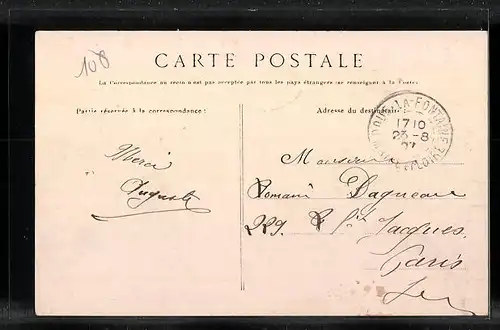 108
CARTE POSTALE
La Correspondance au recto n'est pas acceptée par tous les pays étrangers (se renseigner à la Poste)
Partie réservée à la correspondance :
Adresse du destinataire
DOUÉ-LA-FONTAINE
1710
23-8
07
Merci
Auguste
Monsieur
Romain Dagneau
229. St Jacques
Paris